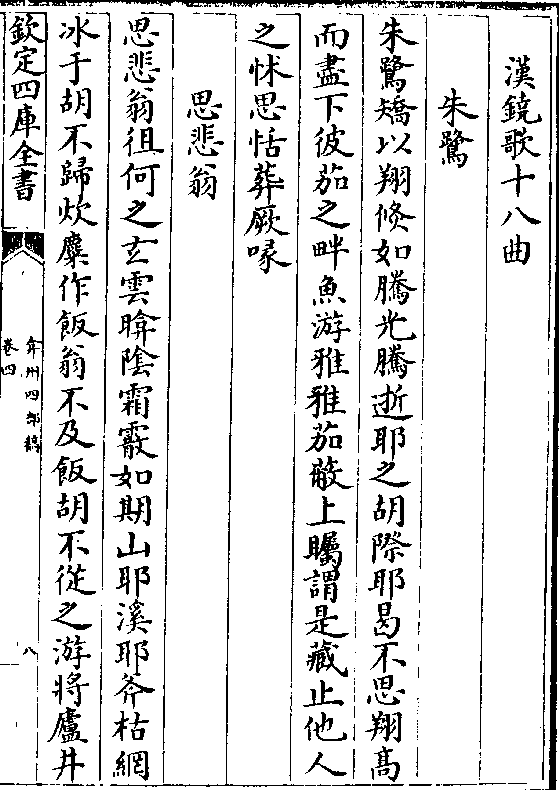 漢鐃歌十八曲
朱鷺
朱鷺矯以翔倏如騰光騰逝耶之胡際耶曷不思翔高
而盡下彼茄之畔魚游雅雅茄蔽上矚謂是藏止他人
之怵思恬葬厥喙
思悲翁
思悲翁徂何之玄雲暗陰霜霰如期山耶溪耶斧枯網
冰于胡不歸炊糜作飯翁不及飯胡不從之游將廬井
欽定四庫全書
弇州四部稿
卷四
八